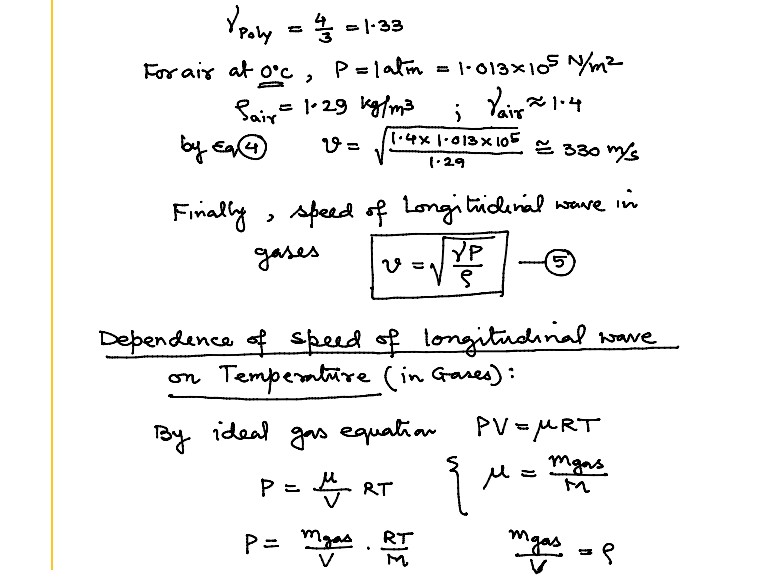 γPoly = 4/3 = 1.33
For air at 0°C , P = 1atm = 1.013×10⁵ N/m²
ρair = 1.29 kg/m³ ; γair ≈ 1.4
by Eq ④ v = √(1.4 × 1.013×10⁵ / 1.29) ≅ 330 m/s
Finally , speed of Longitudinal wave in
gases v = √(γP/ρ) — ⑤
Dependence of speed of longitudinal wave
on Temperature (in Gases) :
By ideal gas equation PV = μRT
P = μ/V RT { μ = mgas/M
P = mgas/V . RT/M mgas/V = ρ